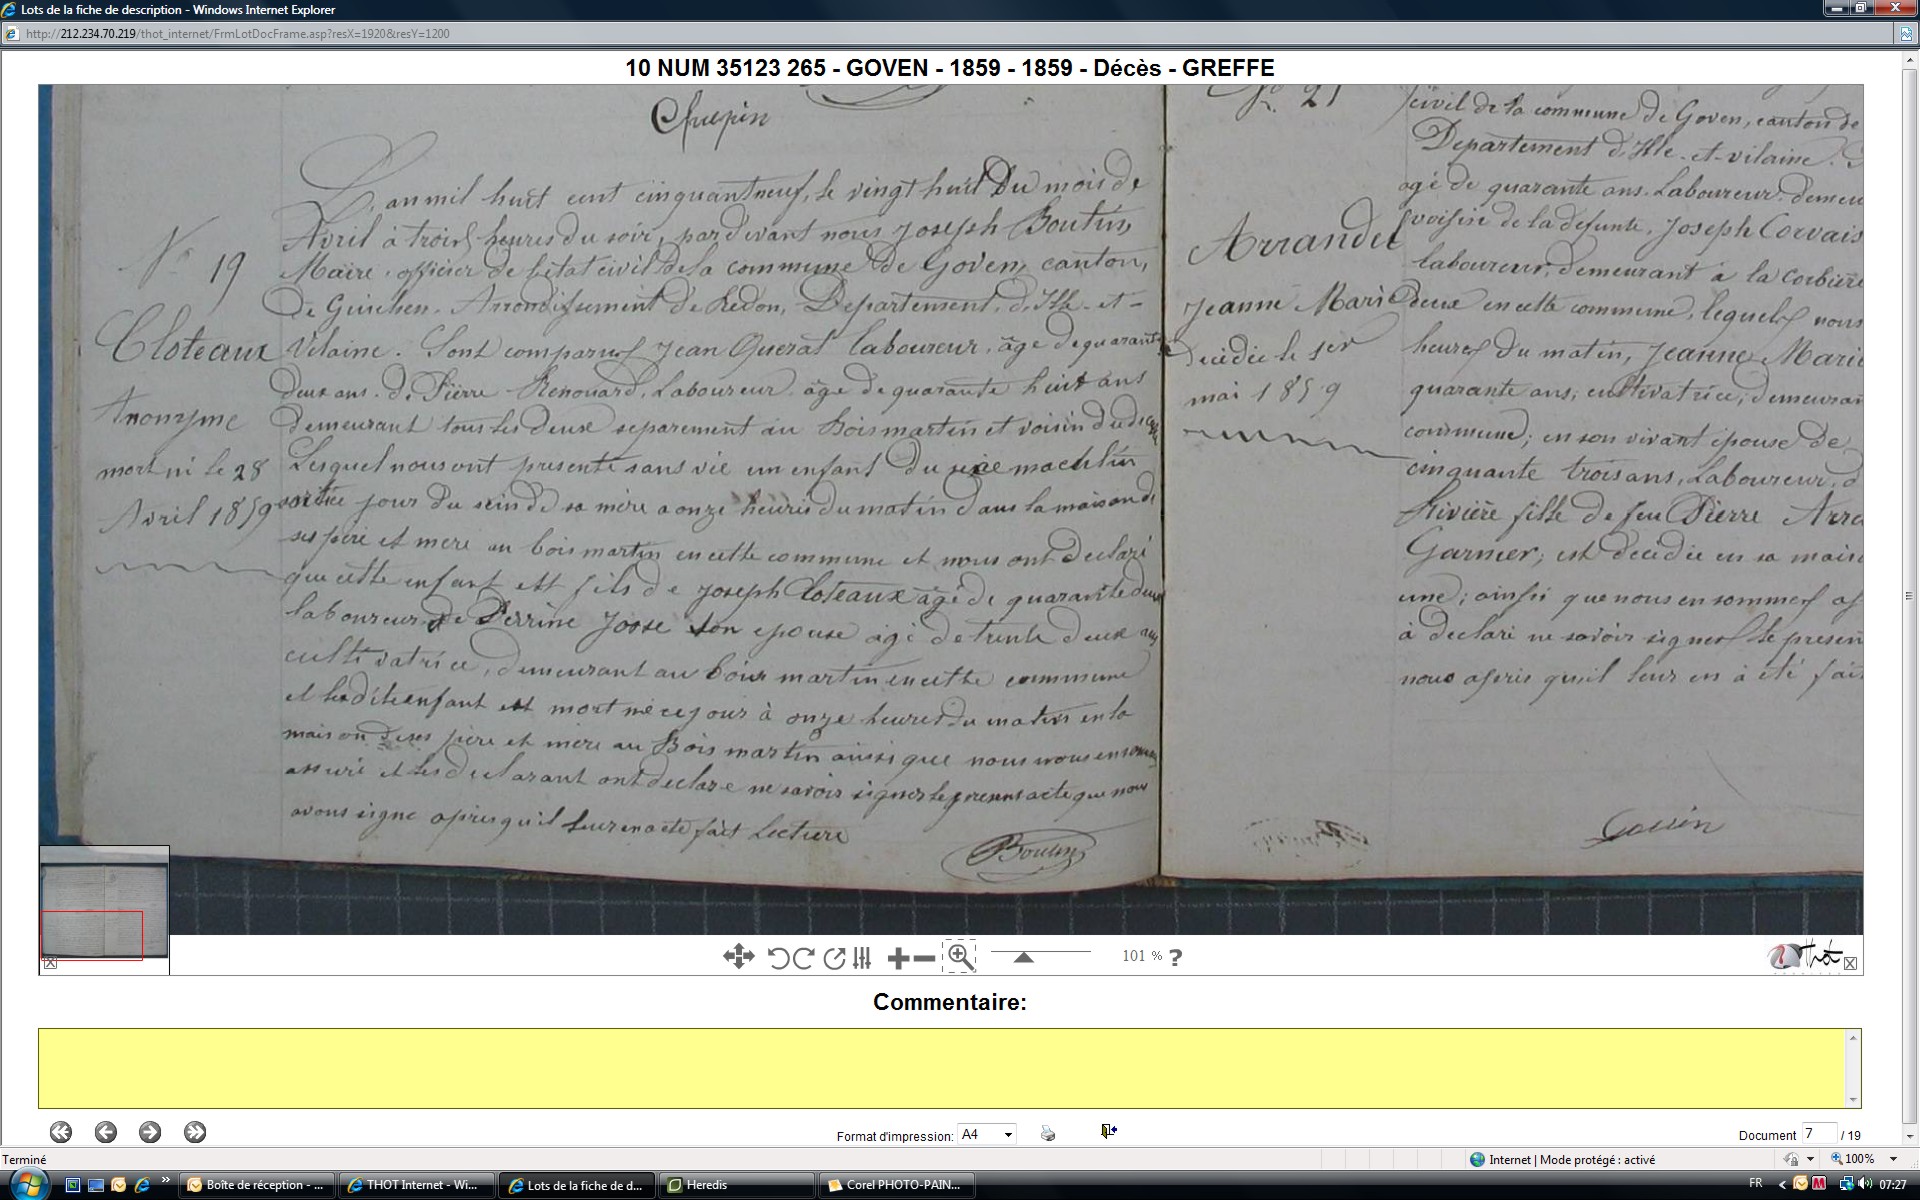 Lots de la fiche de description - Windows Internet Explorer
http://212.234.70.219/thot_internet/FrmLotDocFrame.asp?resX=1920&resY=1200
10 NUM 35123 265 - GOVEN - 1859 - 1859 - Décès - GREFFE
N° 19
Cloteaux
Anonyme
mort né le 28
Avril 1859
L'an mil huit cent cinquantneuf, le vingt huit Du mois de
Avril à trois heures du soir, pardevant nous Joseph Boutin,
Maire, officier de l'état civil de la commune de Goven, canton,
De Guichen, Arrondissement de Redon, Departement, d'Ille-et-
Vilaine. Sont comparus Jean Querat laboureur, âgé de quarante
deux ans. d. Pierre Renouard, Laboureur âge de quarante huit ans
demeurant tous les deux separement au Bois martin et voisin du
Lesquel nous ont presenté sans vie un enfant du sexe
jour du sein de sa mère a onze heures du matin dans la maison de
ses père et mere au bois martin en cette commune et nous ont declaré
que cette enfant est fils de Joseph Cloteaux âgé de quarante deux
laboureur, de Perrine Josse son epouse agé de trente deux ans
cultivatrice, demeurant au bois martin en cette commune
et enfant est mort né ce jour à onze heures du matin en la
maison de ses père et mère au Bois martin ainsi que nous nous en sommes
assuré et les declarant ont declare ne savoir signer le present acte que nous
avons signe apres qu'il leur en a eté fait Lecture
Boutin
21
Arrandel
Jeanne Marie
Décédée le 1er
mai 1859
civil de la commune de Goven, canton de
Departement d'Ille-et-vilaine.
agé de quarante ans. Laboureur. demeu
voisin de la defunte, Joseph Corvais
laboureur, demeurant à la corbière
deux en cette commune, lequels nous
heures du matin, Jeanne Marie
quarante ans, cultivatrice, demeuran
commune; en son vivant épouse de
cinquante trois ans, Laboureur, d
Rivière fille de feu Pierre Arra
Garnier; est décédée en sa mais
une; ainsi que nous en sommes as
à declaré ne savoir signer le presen
nous apris qu'il leur en à été fait
101 % ?
Thot
Commentaire:
Format d'impression: A4
Document 7 / 19
Terminé
Internet | Mode protégé : activé
100%
Boîte de réception - ...
THOT Internet - Wi...
Lots de la fiche de d...
Heredis
Corel PHOTO-PAIN...
FR
07:27